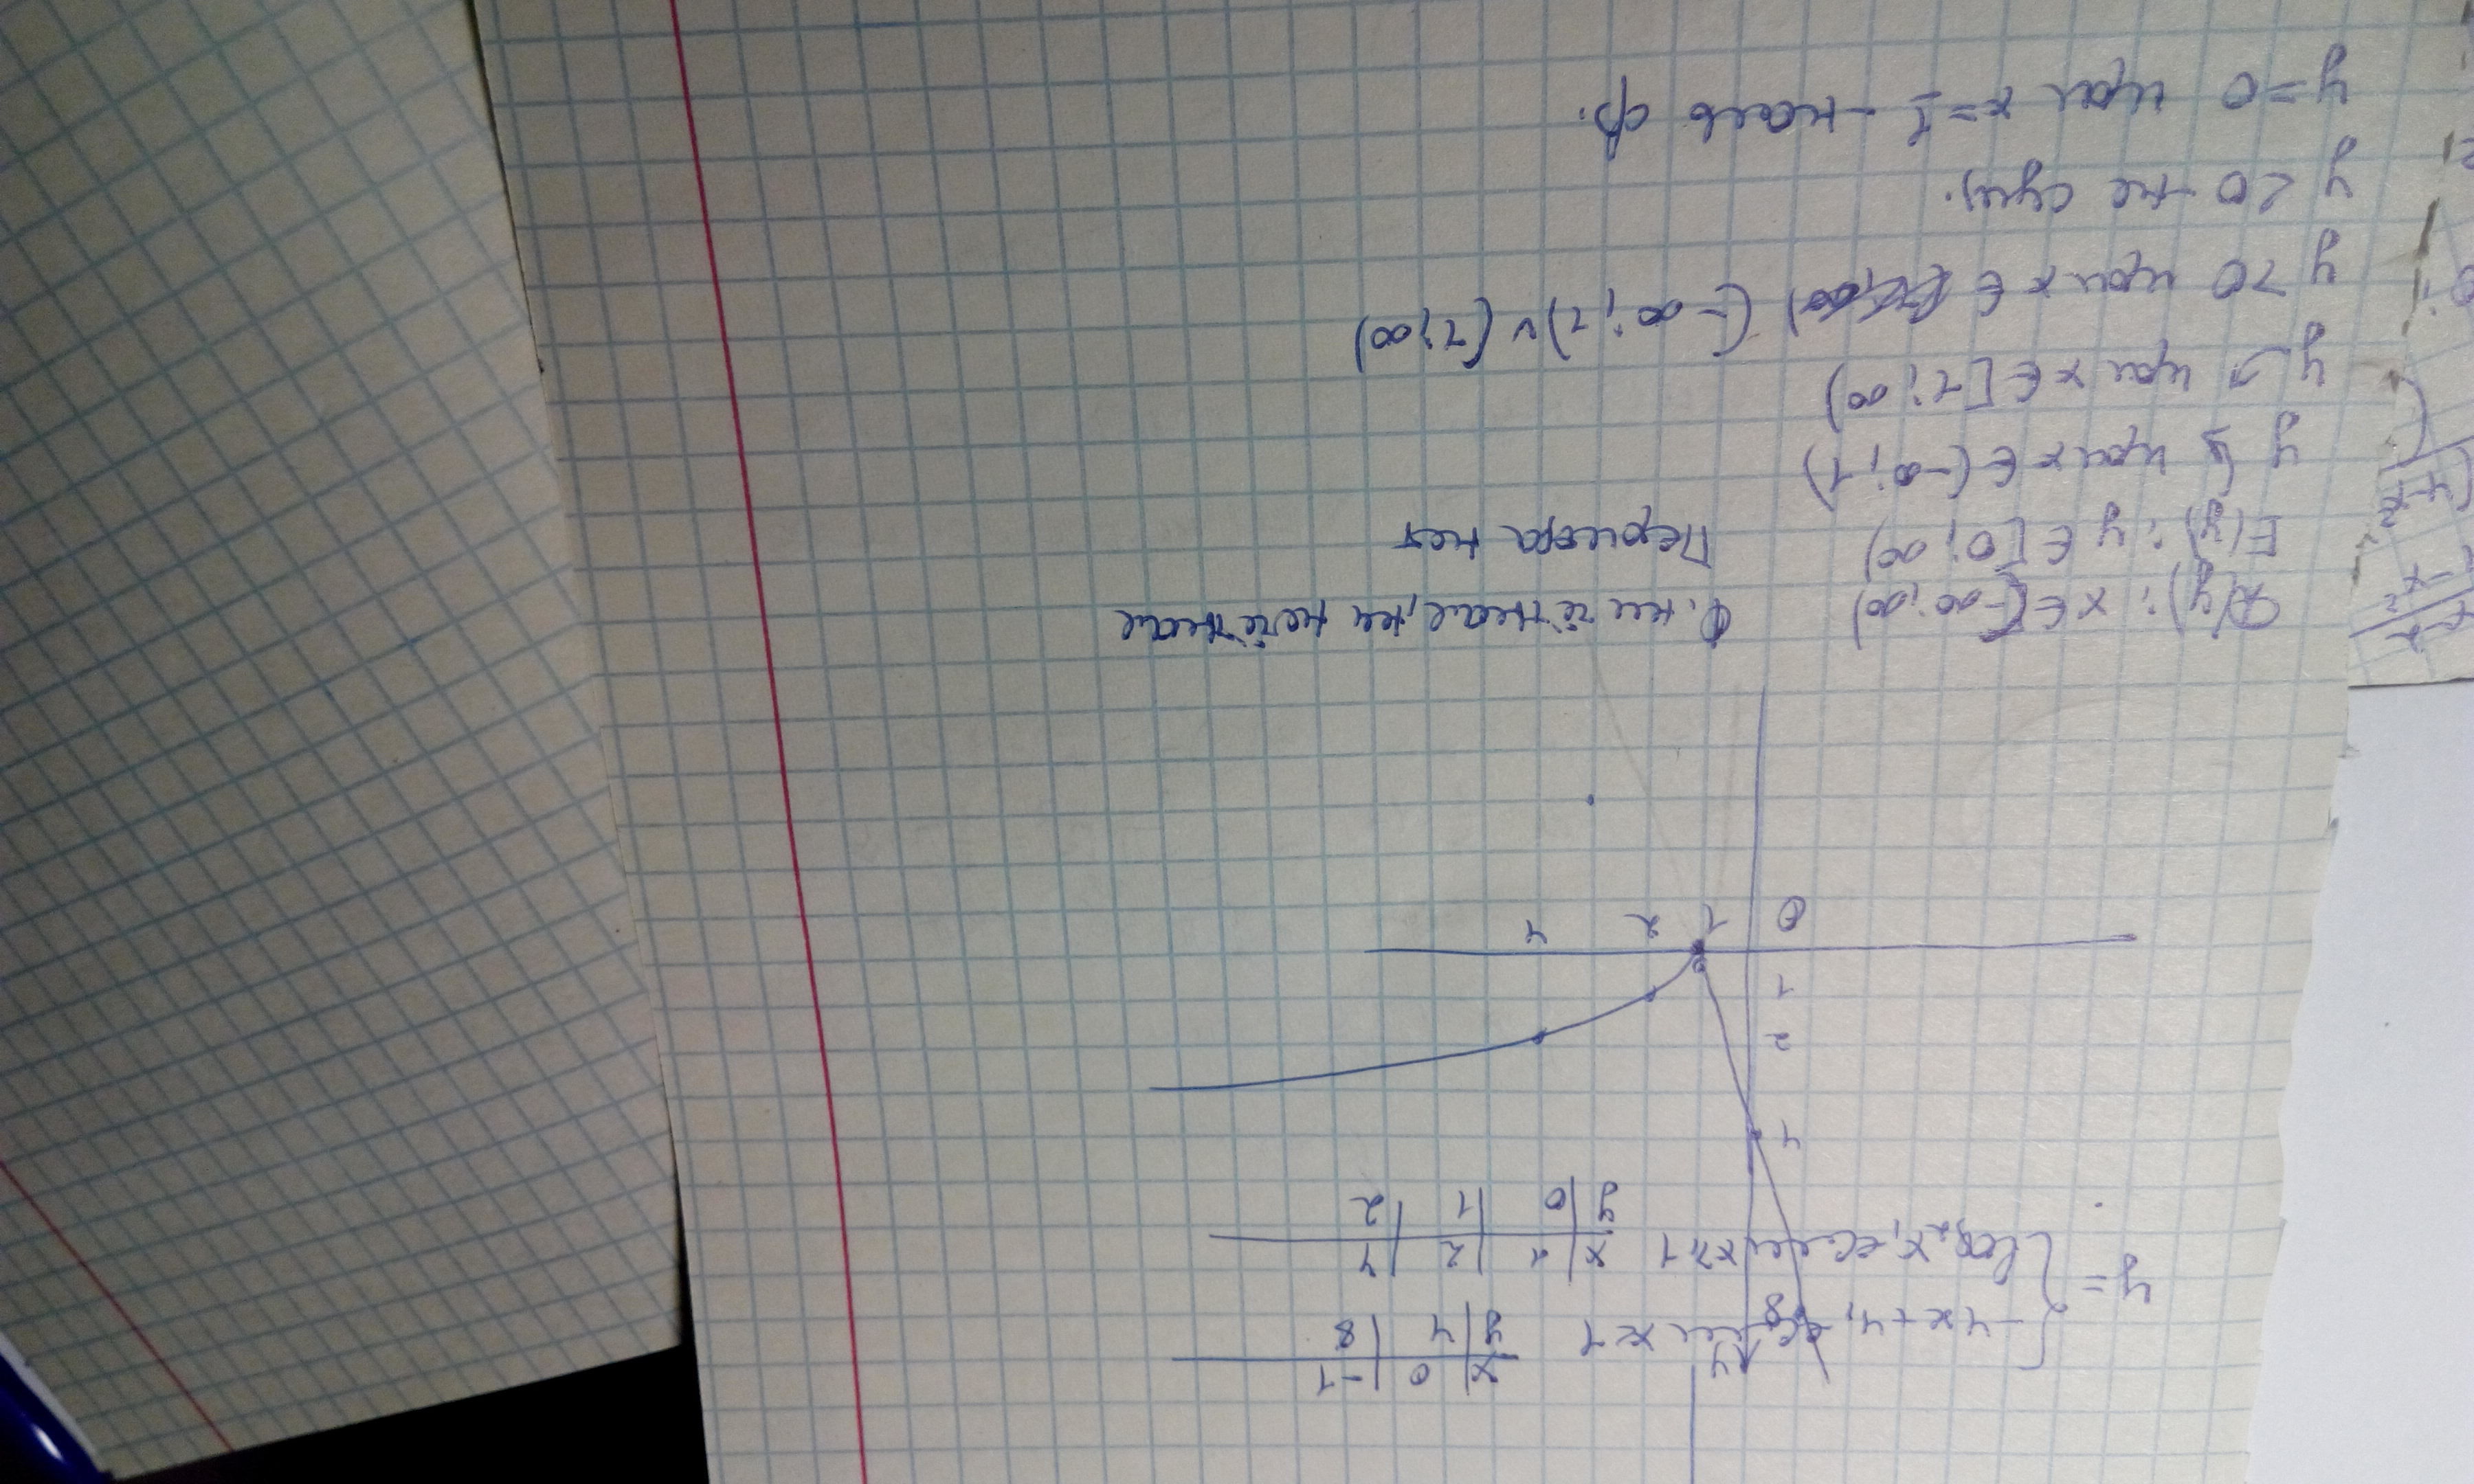 y = { -4x+4, если x<1
x | 0 | -1
y | 4 | 8
log₂x, если x⩾1
x | 1 | 2 | 4
y | 0 | 1 | 2
y
8
4
2
1
0 1 2 4
D(y): x ∈ (-∞; ∞) ф. ни чётная, ни нечётная
E(y): y ∈ [0; ∞) Периода нет
y ↘ при x ∈ (-∞; 1)
y ↗ при x ∈ [1; ∞)
y >0 при x ∈ (-∞; 1) ∪ (1; ∞)
y <0 - не сущ.
y =0 при x=1 - ноль ф.